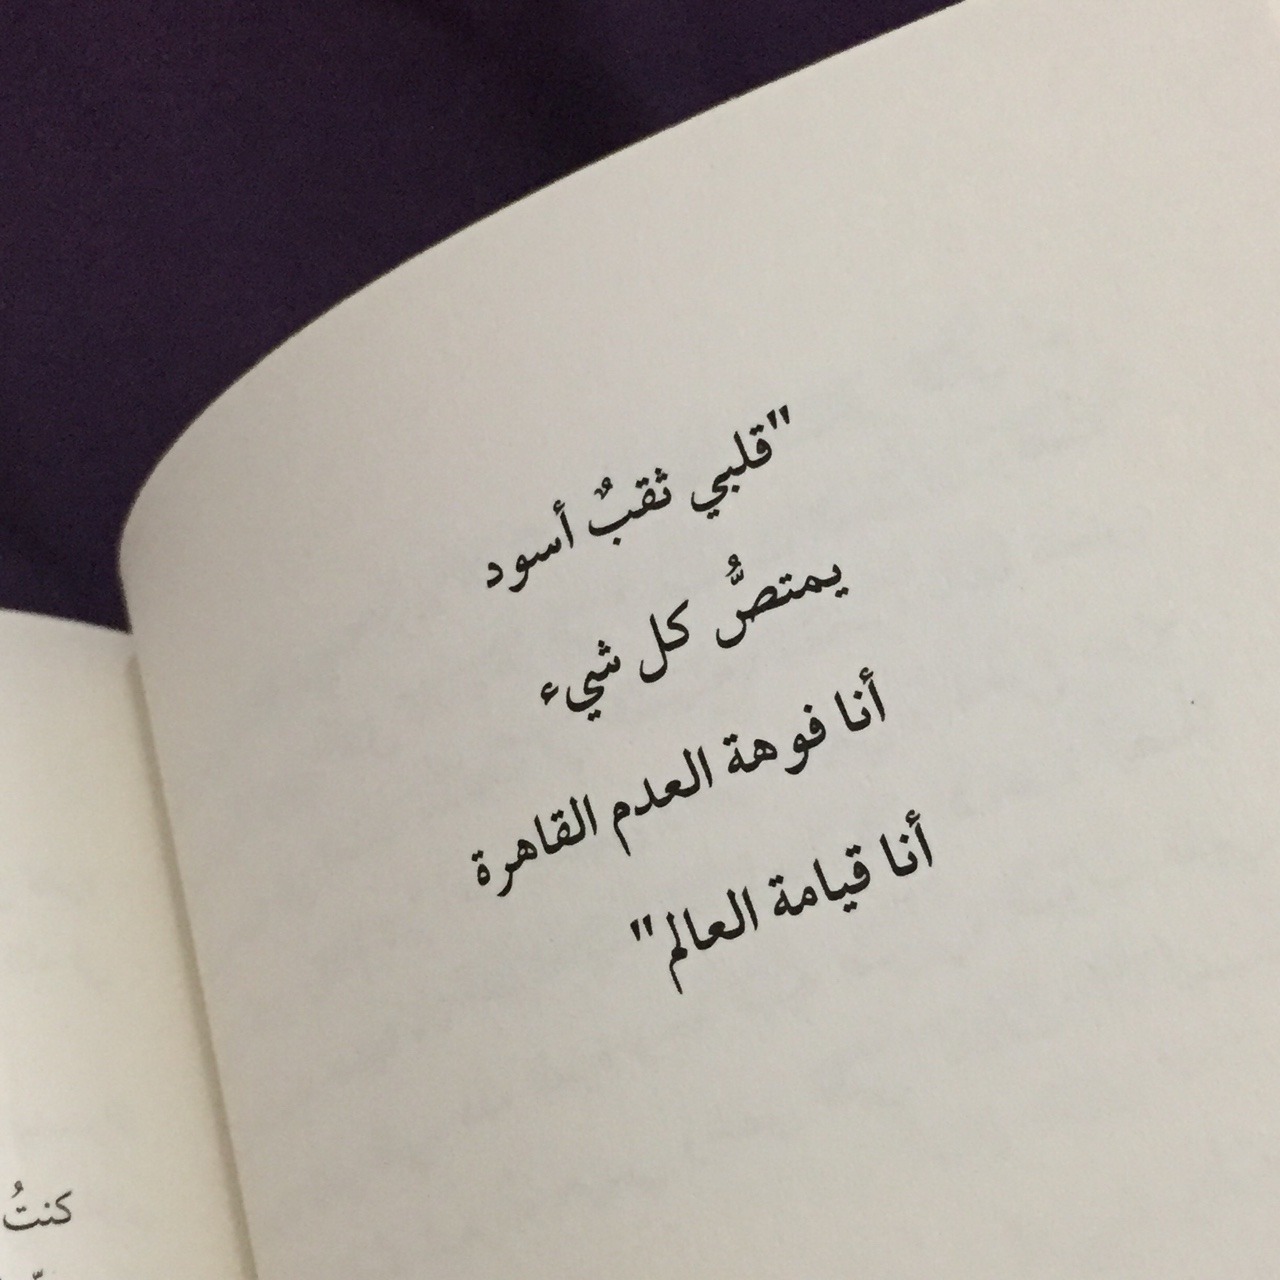 "قلبي ثقبٌ أسود
يمتصُّ كل شيء
أنا فوهة العدم القاهرة
أنا قيامة العالم"
كنتُ